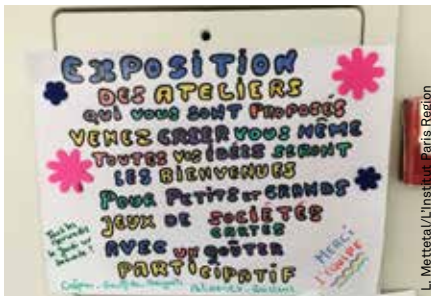 EXPOSITION
DES ATELIERS
QUI VOUS SONT PROPOSÉS
VENEZ CRÉER VOUS MÊME
TOUTES VOS IDÉES SERONT
LES BIENVENUES
POUR PETITS ET GRANDS
JEUX DE SOCIÉTÉS
CARTES
AVEC UN GOÛTER
PARTICIPATIF
MERCI
L'ÉQUIPE
L. Mettetal/L'Institut Paris Region